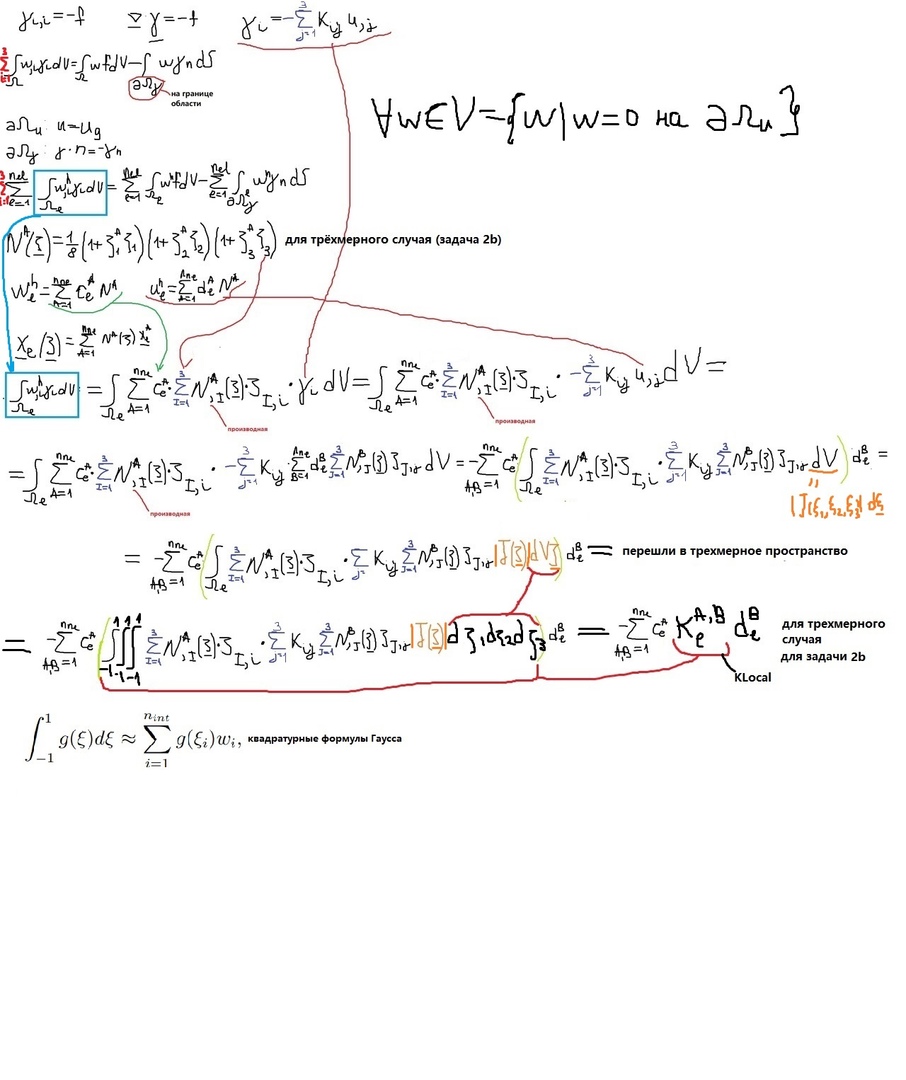 γ_{i,i} = -f     ∇γ = -f     γ_i = -∑_{j=1}^{3} K_{ij} u_{,j}
∑_{i=1}^{3} ∫_Ω w_{,i} γ_i dV = ∫_Ω w f dV - ∫_{∂Ω_γ} w γ_n dS
на границе
области
∀w∈V={w|w=0 на ∂Ω_u}
∂Ω_u: u = u_g
∂Ω_γ: γ·n = -γ_n
∑_{i=1}^{3} ∑_{e=1}^{nel} ∫_{Ω_e} w^h_{,i} γ_i dV = ∑_{e=1}^{nel} ∫_{Ω_e} w^h f dV - ∑_{e=1}^{nel} ∫_{∂Ω^e_γ} w^h γ_n dS
N^A(ξ) = 1/8 (1+ξ_1^A ξ_1)(1+ξ_2^A ξ_2)(1+ξ_3^A ξ_3) для трёхмерного случая (задача 2b)
w_e^h = ∑_{A=1}^{nne} c_e^A N^A     u_e^h = ∑_{A=1}^{nne} d_e^A N^A
x_e(ξ) = ∑_{A=1}^{nne} N^A(ξ) x_e^A
∫_{Ω_e} w^h_{,i} γ_i dV = ∫_{Ω_e} ∑_{A=1}^{nne} c_e^A · ∑_{I=1}^{3} N^A_{,I}(ξ)·ξ_{I,i} · γ_i dV = ∫_{Ω_e} ∑_{A=1}^{nne} c_e^A · ∑_{I=1}^{3} N^A_{,I}(ξ)·ξ_{I,i} · -∑_{j=1}^{3} K_{ij} u_{,j} dV =
производная
производная
= ∫_{Ω_e} ∑_{A=1}^{nne} c_e^A · ∑_{I=1}^{3} N^A_{,I}(ξ)·ξ_{I,i} · -∑_{j=1}^{3} K_{ij} ∑_{B=1}^{nne} d_e^B ∑_{J=1}^{3} N^B_{,J}(ξ) ξ_{J,j} dV = -∑_{A,B=1}^{nne} c_e^A (∫_{Ω_e} ∑_{I=1}^{3} N^A_{,I}(ξ)·ξ_{I,i} · ∑_{j=1}^{3} K_{ij} ∑_{J=1}^{3} N^B_{,J}(ξ) ξ_{J,j} dV) d_e^B =
производная
|J(ξ_1,ξ_2,ξ_3)| dξ
= -∑_{A,B=1}^{nne} c_e^A (∫_{Ω_e} ∑_{I=1}^{3} N^A_{,I}(ξ)·ξ_{I,i} · ∑_j K_{ij} ∑_{J=1}^{3} N^B_{,J}(ξ) ξ_{J,j} |J(ξ)| dVξ) d_e^B = перешли в трехмерное пространство
= -∑_{A,B=1}^{nne} c_e^A (∫_{-1}^{1} ∫_{-1}^{1} ∫_{-1}^{1} ∑_{I=1}^{3} N^A_{,I}(ξ)·ξ_{I,i} · ∑_{j=1}^{3} K_{ij} ∑_{J=1}^{3} N^B_{,J}(ξ) ξ_{J,j} |J(ξ)| dξ_1 dξ_2 dξ_3) d_e^B = -∑_{A,B=1}^{nne} c_e^A K_e^{A,B} d_e^B
для трехмерного
случая
для задачи 2b
KLocal
∫_{-1}^{1} g(ξ)dξ ≈ ∑_{i=1}^{n_{int}} g(ξ_i)w_i, квадратурные формулы Гаусса